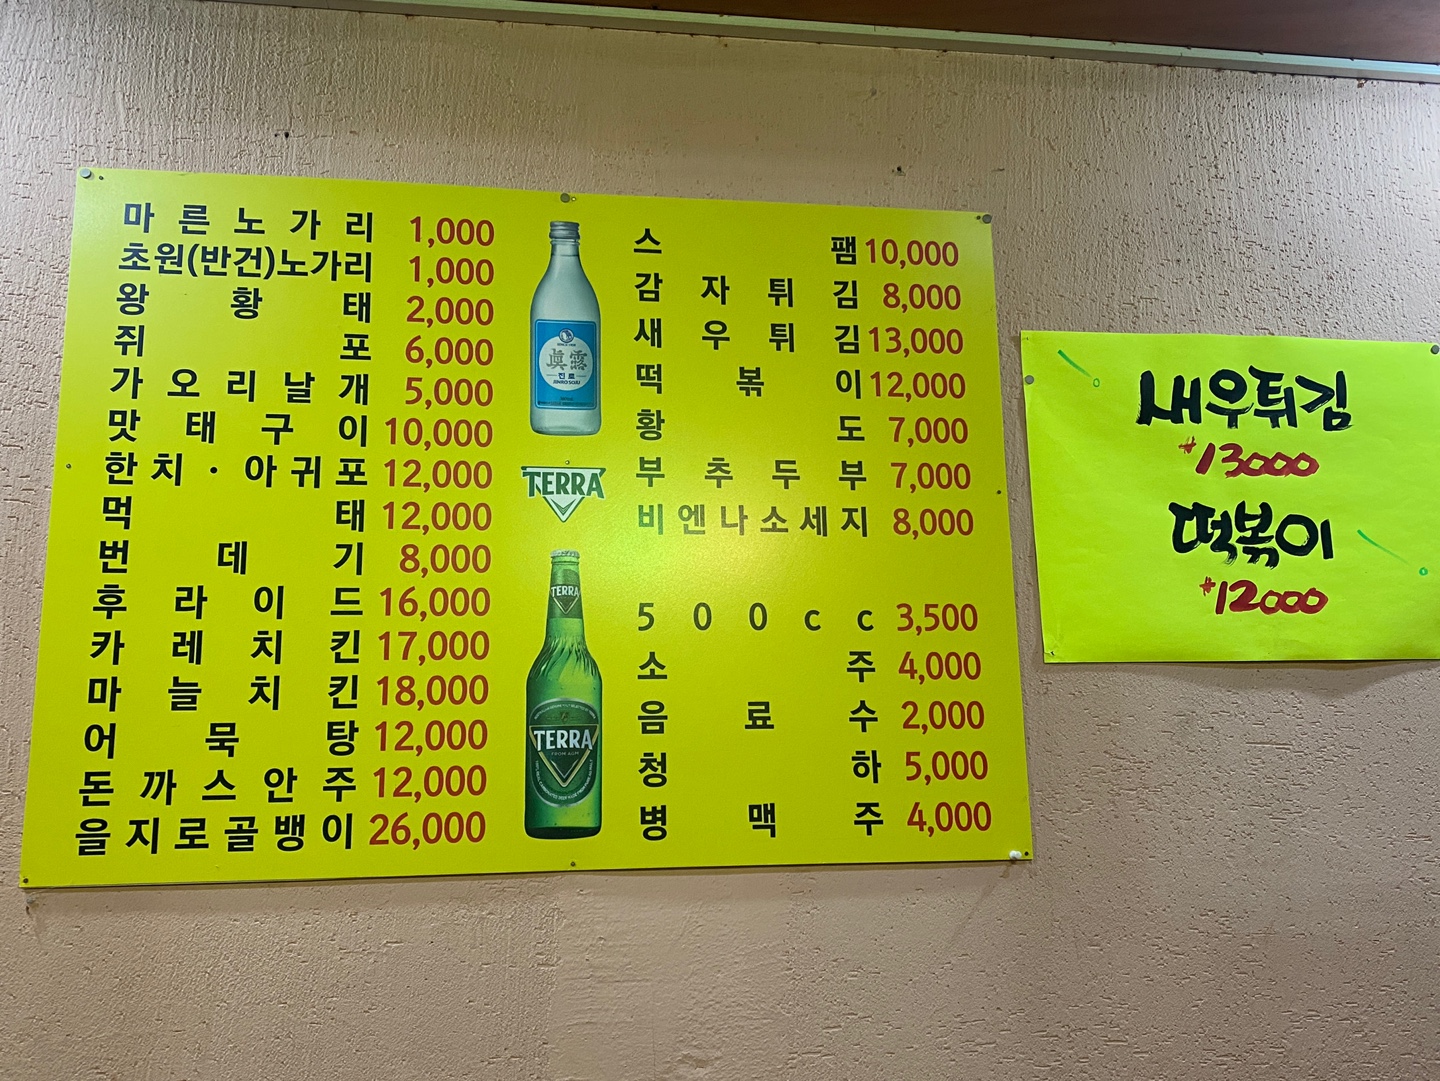 마른노가리 1,000
초원(반건)노가리 1,000
왕황태 2,000
쥐포 6,000
가오리날개 5,000
맛태구이 10,000
한치·아귀포 12,000
먹태 12,000
번데기 8,000
후라이드 16,000
카레치킨 17,000
마늘치킨 18,000
어묵탕 12,000
돈까스안주 12,000
을지로골뱅이 26,000
眞露
진로
JINRO SOJU
TERRA
TERRA
TERRA
스팸 10,000
감자튀김 8,000
새우튀김 13,000
떡볶이 12,000
황도 7,000
부추두부 7,000
비엔나소세지 8,000
500cc 3,500
소주 4,000
음료수 2,000
청하 5,000
병맥주 4,000
새우튀김
#13000
떡볶이
#12000